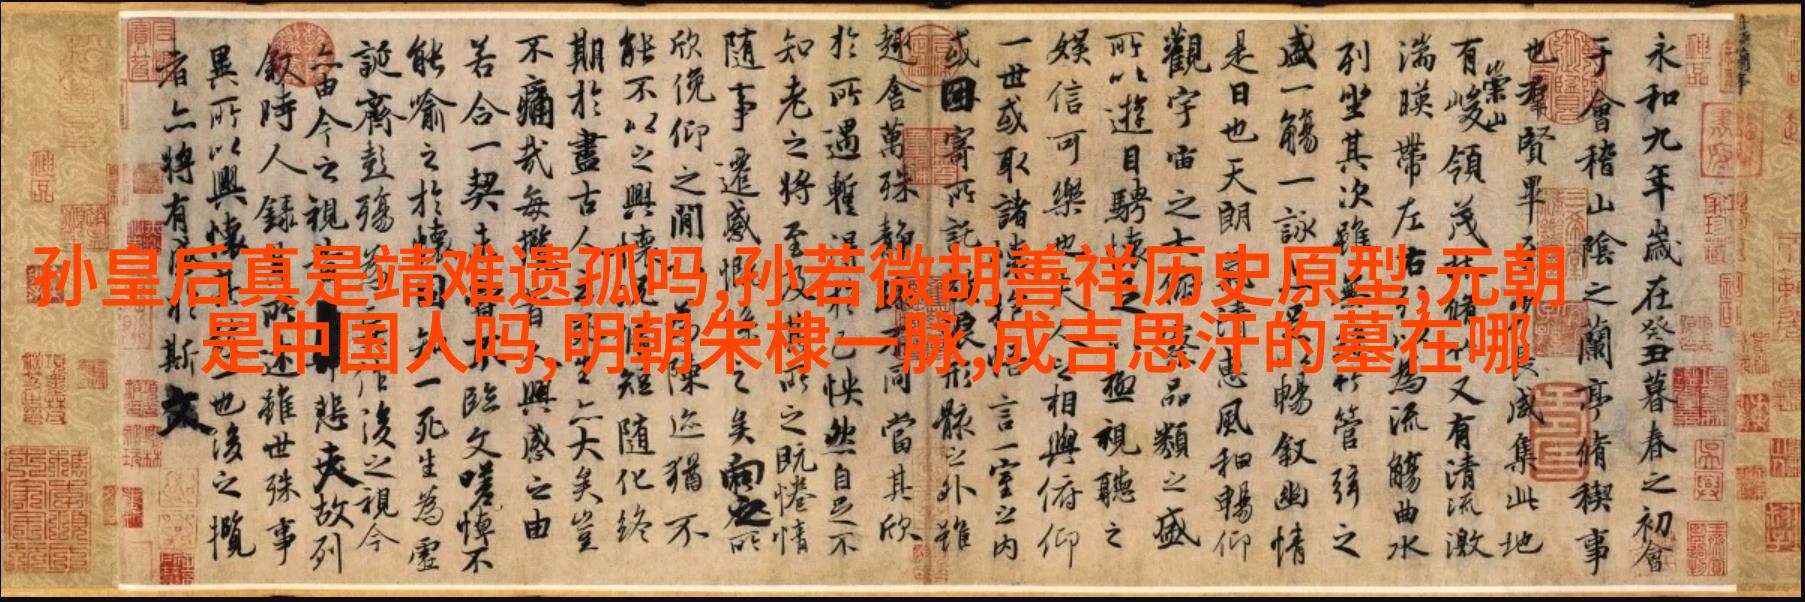 孙皇后真是靖难遗孤吗,孙若微胡善祥历史原型,元朝
是中国人吗,明朝朱棣一脉,成吉思汗的墓在哪
永和九年歲在癸丑暮春之初會
于會稽山陰之蘭亭脩禊事
也羣賢畢至少長咸集此地
有崇山峻領茂林脩竹又有清流激
湍暎帶左右引以為流觴曲水
列坐其次雖無絲竹管弦之
盛一觴一詠亦足以暢叙幽情
是日也天朗氣清惠風和暢仰
觀宇宙之大俯察品類之盛
所以遊目騁懷足以極視聽之
娛信可樂也夫人之相與俯仰
一世或取諸懷抱悟言一室之内
或因寄所託放浪形骸之外雖
趣舍萬殊靜躁不同當其欣
於所遇暫得於己怏然自足不
知老之將至及其所之既惓情
隨事遷感慨係之矣向之所
欣俛仰之閒以為陳迹猶不
能不以之興懷況脩短隨化終
期於盡古人云死生亦大矣豈
不痛哉每攬昔人興感之由
若合一契未嘗不臨文嗟悼不
能喻之於懷固知一死生為虛
誕齊彭殤為妄作後之視今
亦由今之視昔悲夫故列
叙時人錄其所述雖世殊事
異所以興懷其致一也後之攬
者亦將有感於斯文